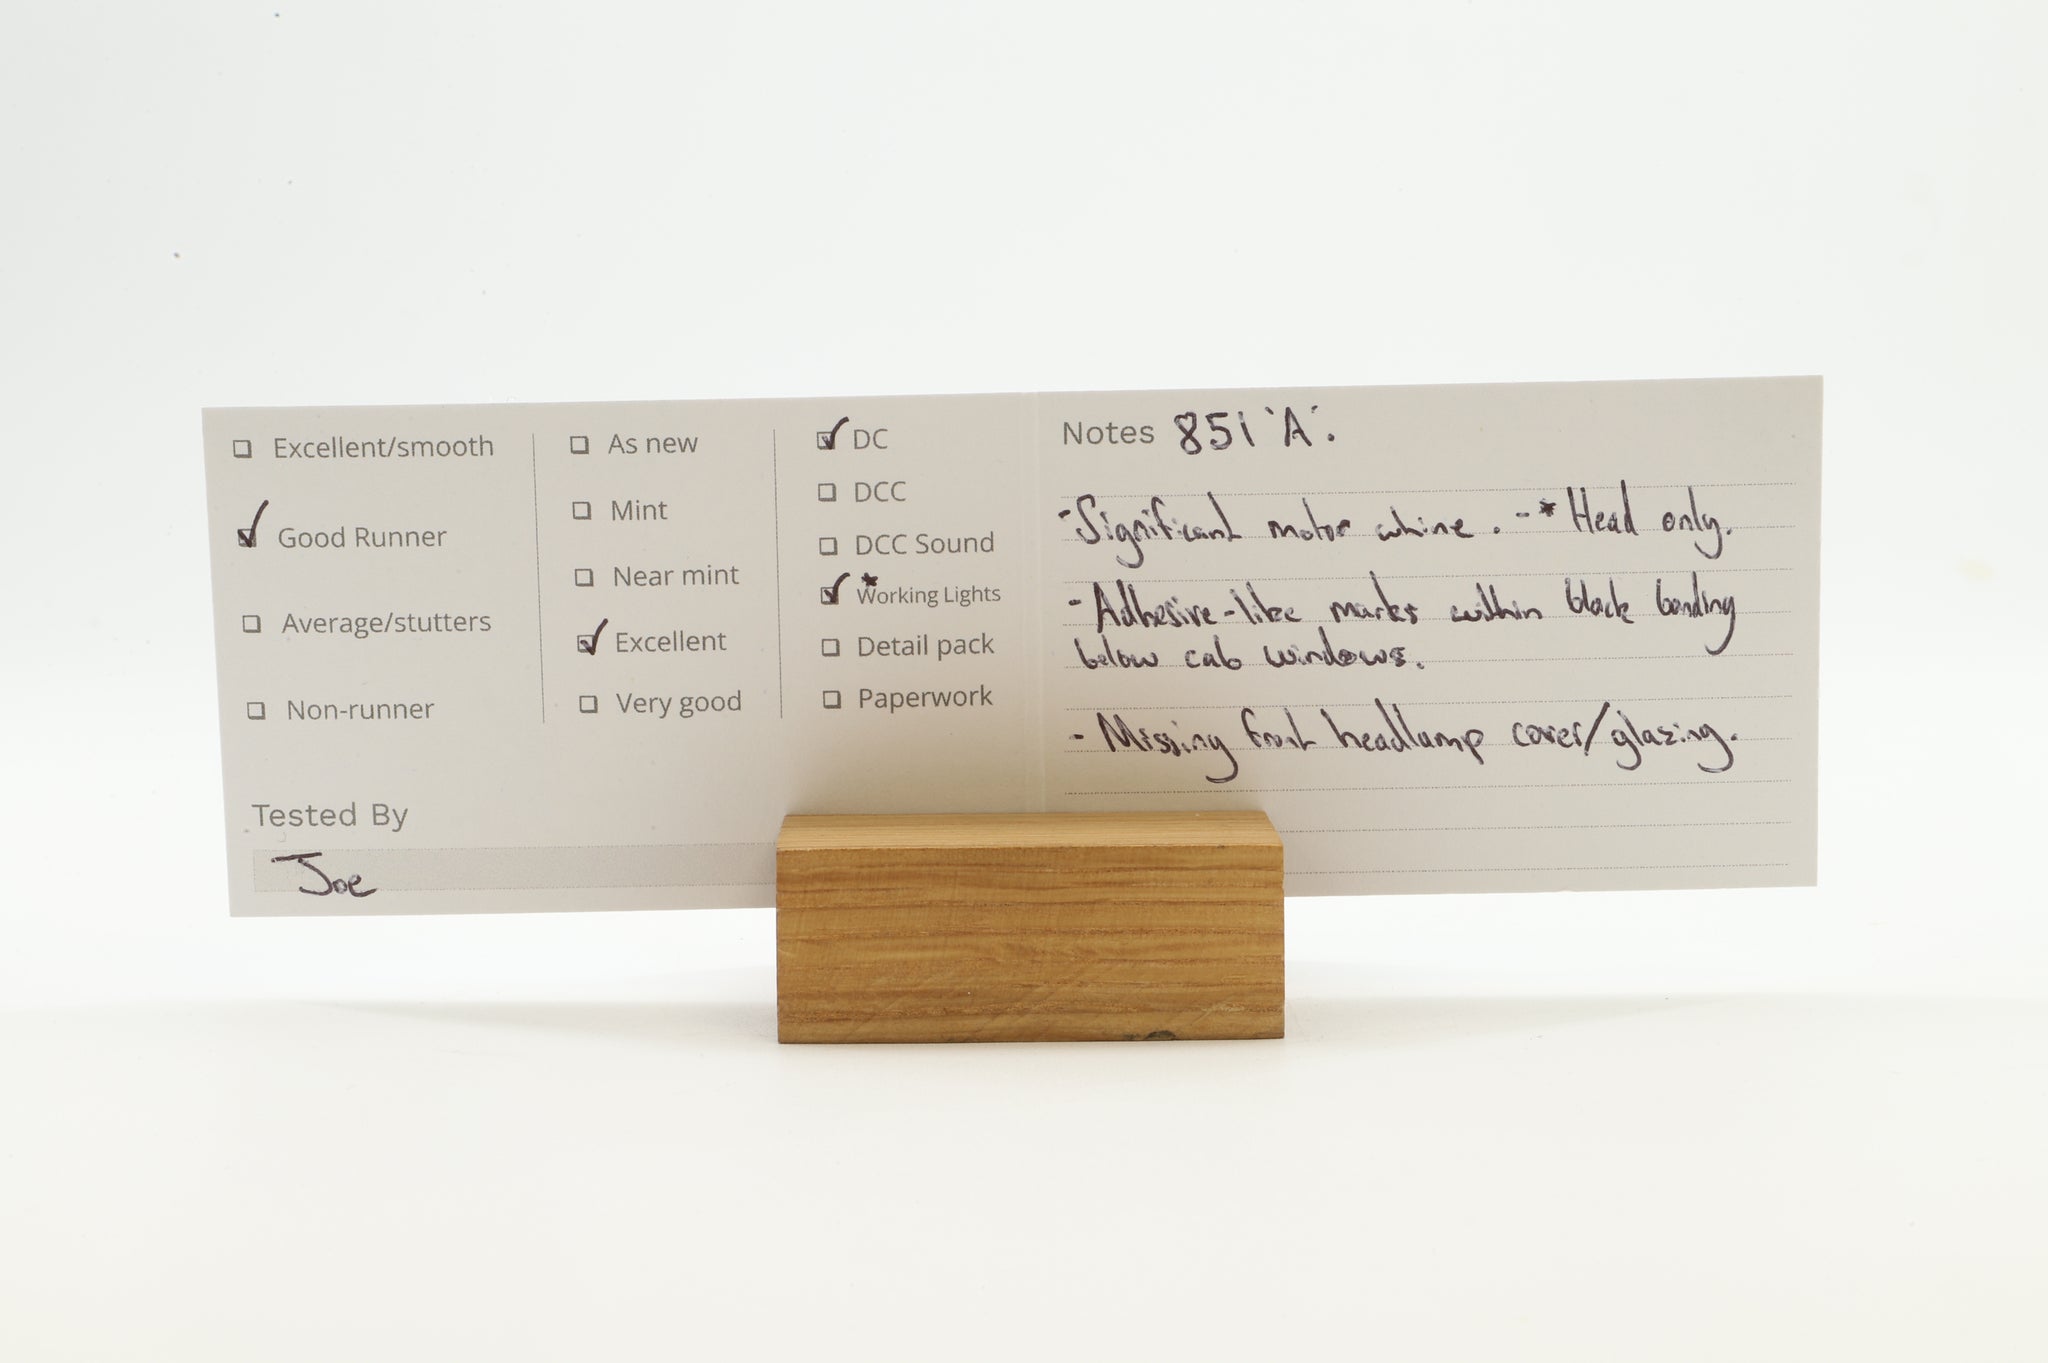 Excellent/smooth
Good Runner
Average/stutters
Non-runner
As new
Mint
Near mint
Excellent
Very good
DC
DCC
DCC Sound
*Working Lights
Detail pack
Paperwork
Tested By
Joe
Notes 851 'A'.
- Significant motor whine. - * Head only.
- Adhesive-like marks within black banding
below cab windows.
- Missing front headlamp cover/glazing.